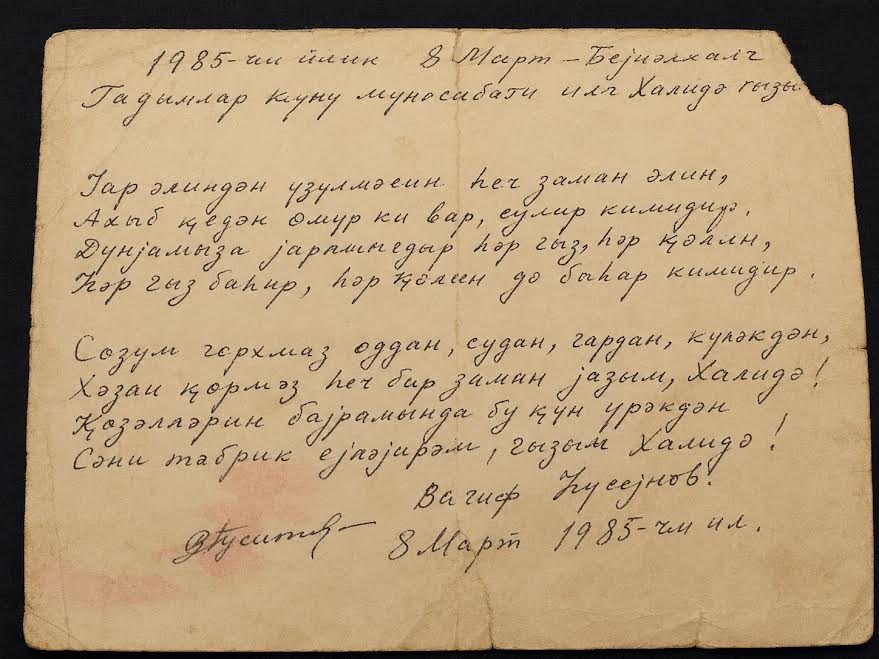 1985-чи илин 8 Март – Бејнәлхалг
Гадынлар куну мунасибати илә Халидә гызы
Јар әлиндән узулмәсин һеч заман әлин,
Ахыб ҝедән омур ки вар, сулар кимидир.
Дунјамыза јарашыгдыр һәр гыз, һәр ҝәлин,
Һәр гыз баһар, һәр ҝәлин дә баһар кимидир.
Созум горхмаз оддан, судан, гардан, күләкдән,
Хәзан ҝормәз һеч бир заман јазым, Халидә!
Ҝозәлләрин бајрамында бу ҝүн урәкдән
Сәни тәбрик ејләјирәм, гызым Халидә!
Вагиф Һусејнов.
8 Март 1985-чи ил.